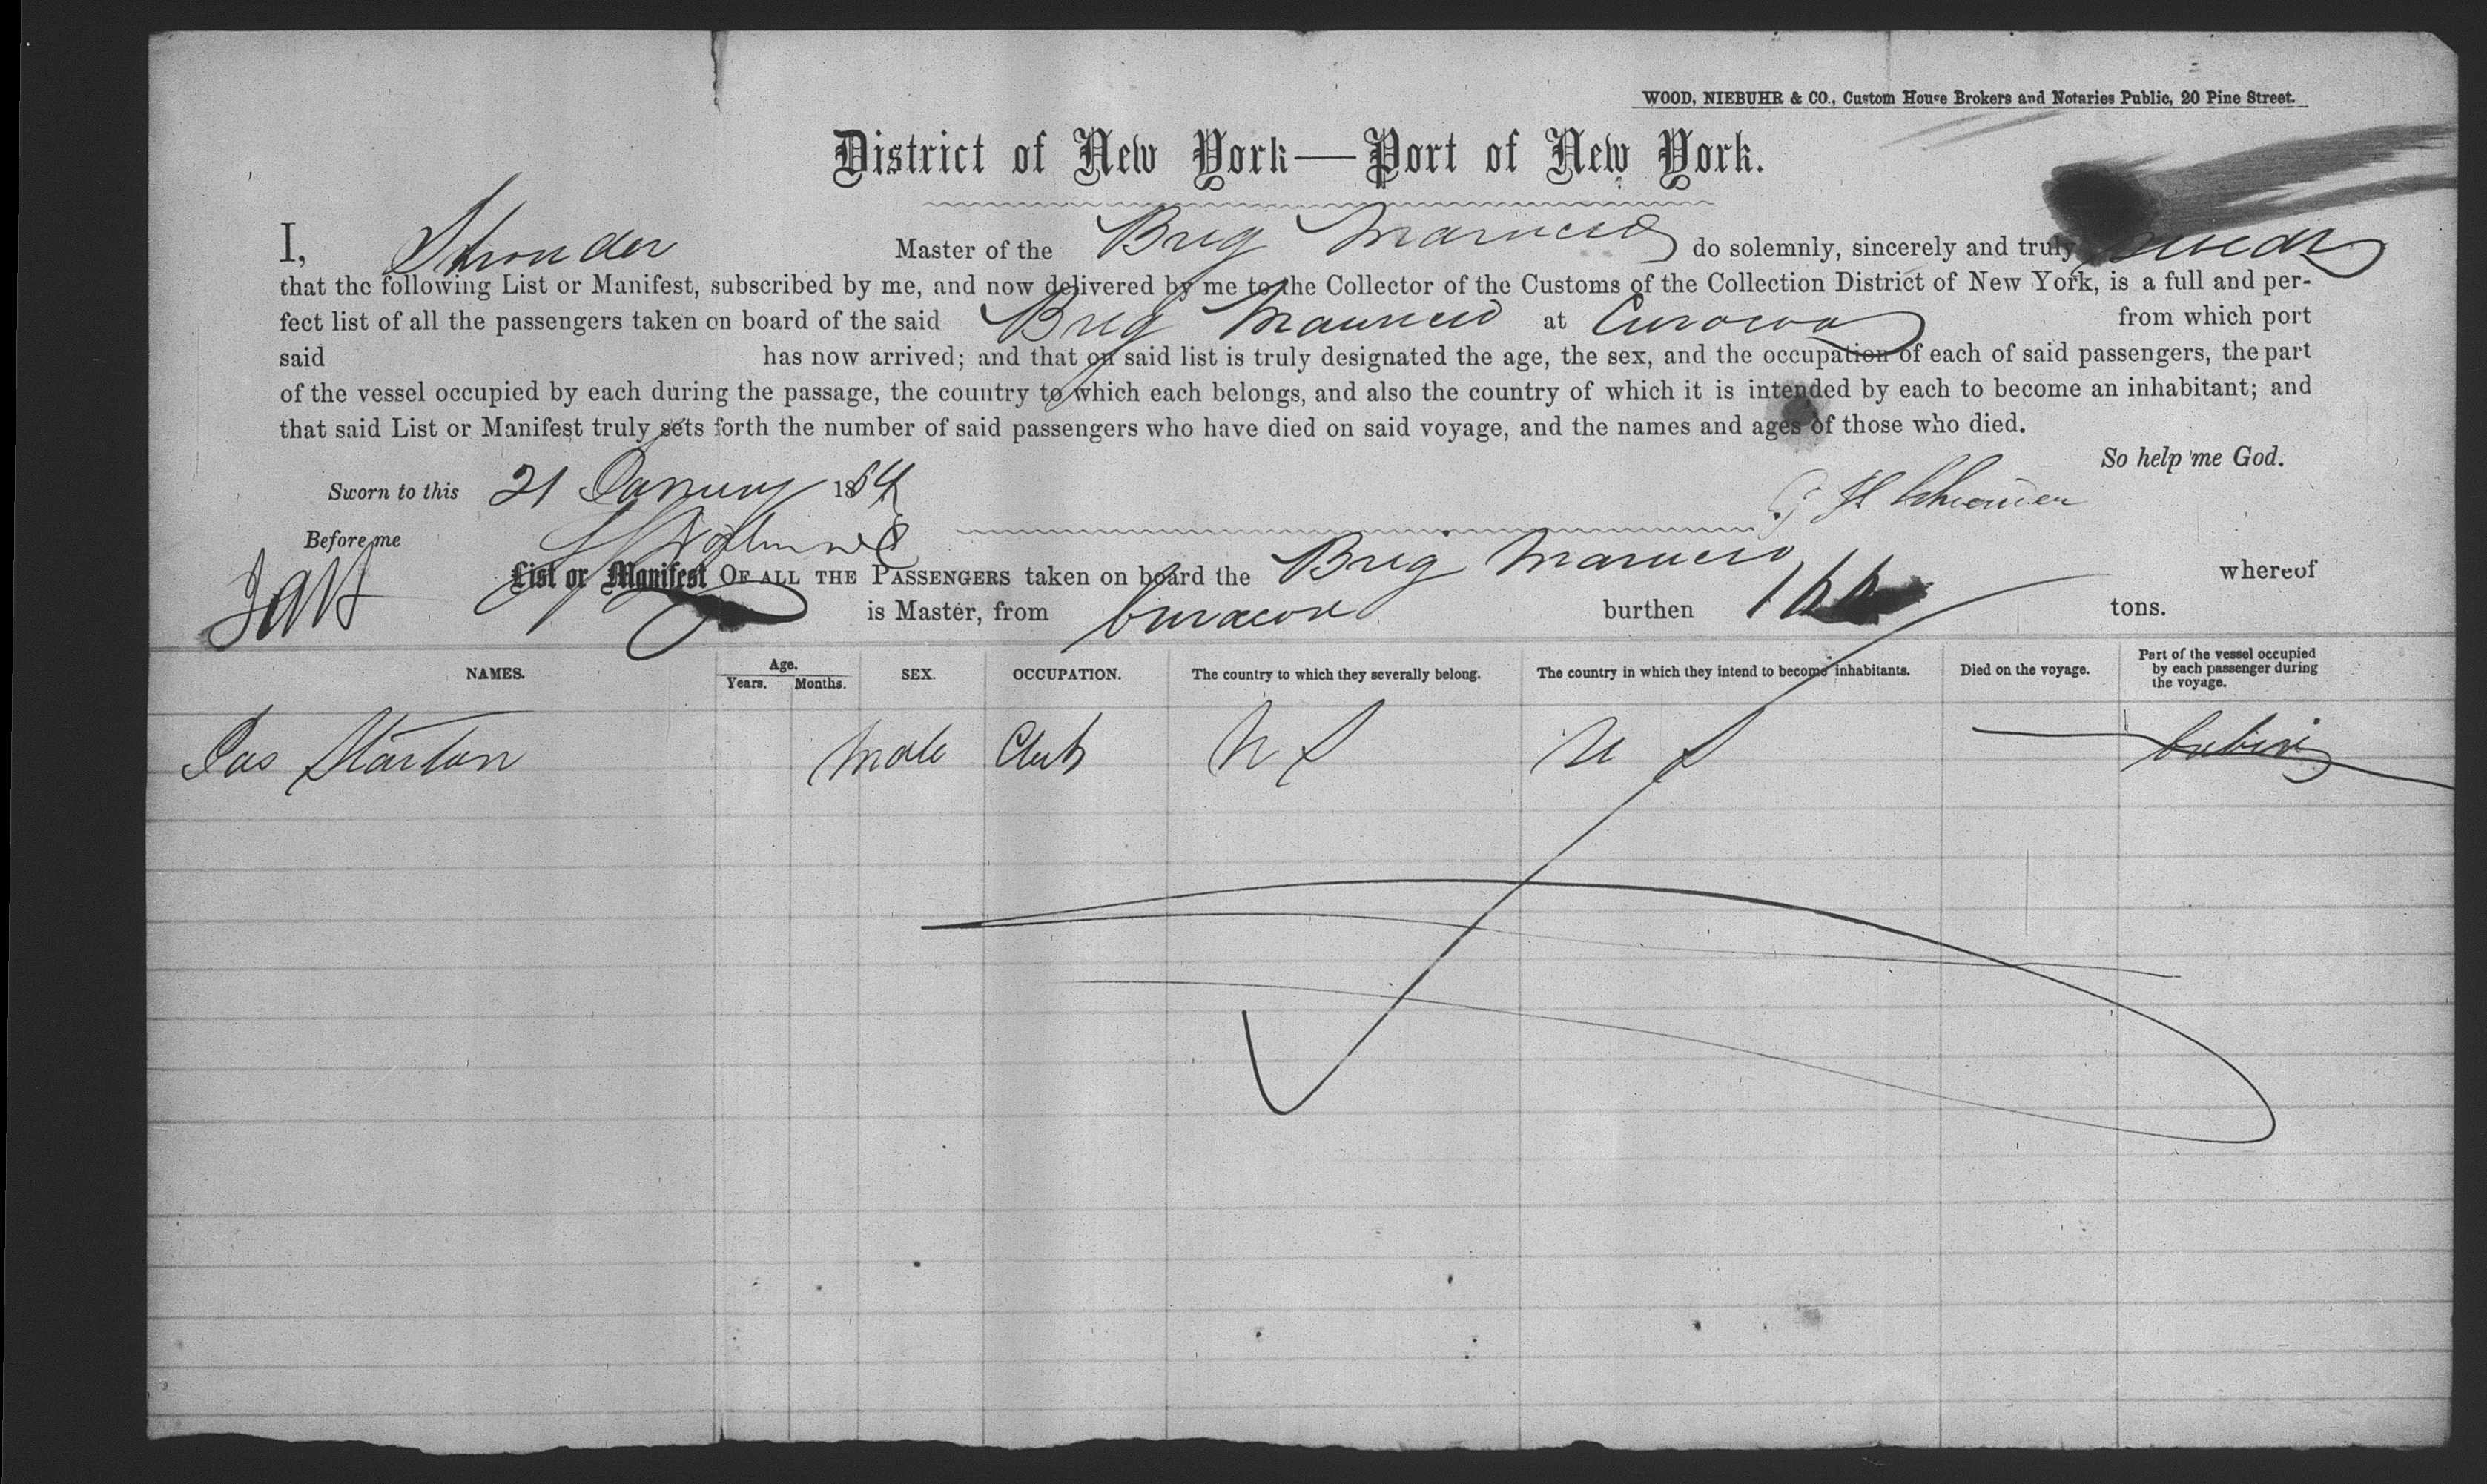 WOOD, NIEBUHR & CO., Custom House Brokers and Notaries Public, 20 Pine Street.
District of New York—Port of New York.
I, Master of the Brig do solemnly, sincerely and truly swear
that the following List or Manifest, subscribed by me, and now delivered by me to the Collector of the Customs of the Collection District of New York, is a full and per-
fect list of all the passengers taken on board of the said Brig at Curacoa from which port
said has now arrived; and that on said list is truly designated the age, the sex, and the occupation of each of said passengers, the part
of the vessel occupied by each during the passage, the country to which each belongs, and also the country of which it is intended by each to become an inhabitant; and
that said List or Manifest truly sets forth the number of said passengers who have died on said voyage, and the names and ages of those who died.
So help me God.
Sworn to this 21 January 1884
Before me
List or Manifest OF ALL THE PASSENGERS taken on board the Brig whereof
is Master, from Curacoa burthen tons.
NAMES. Age. Years. Months. SEX. OCCUPATION. The country to which they severally belong. The country in which they intend to become inhabitants. Died on the voyage. Part of the vessel occupied by each passenger during the voyage.
Jas Male Clerk U S U S — Cabin